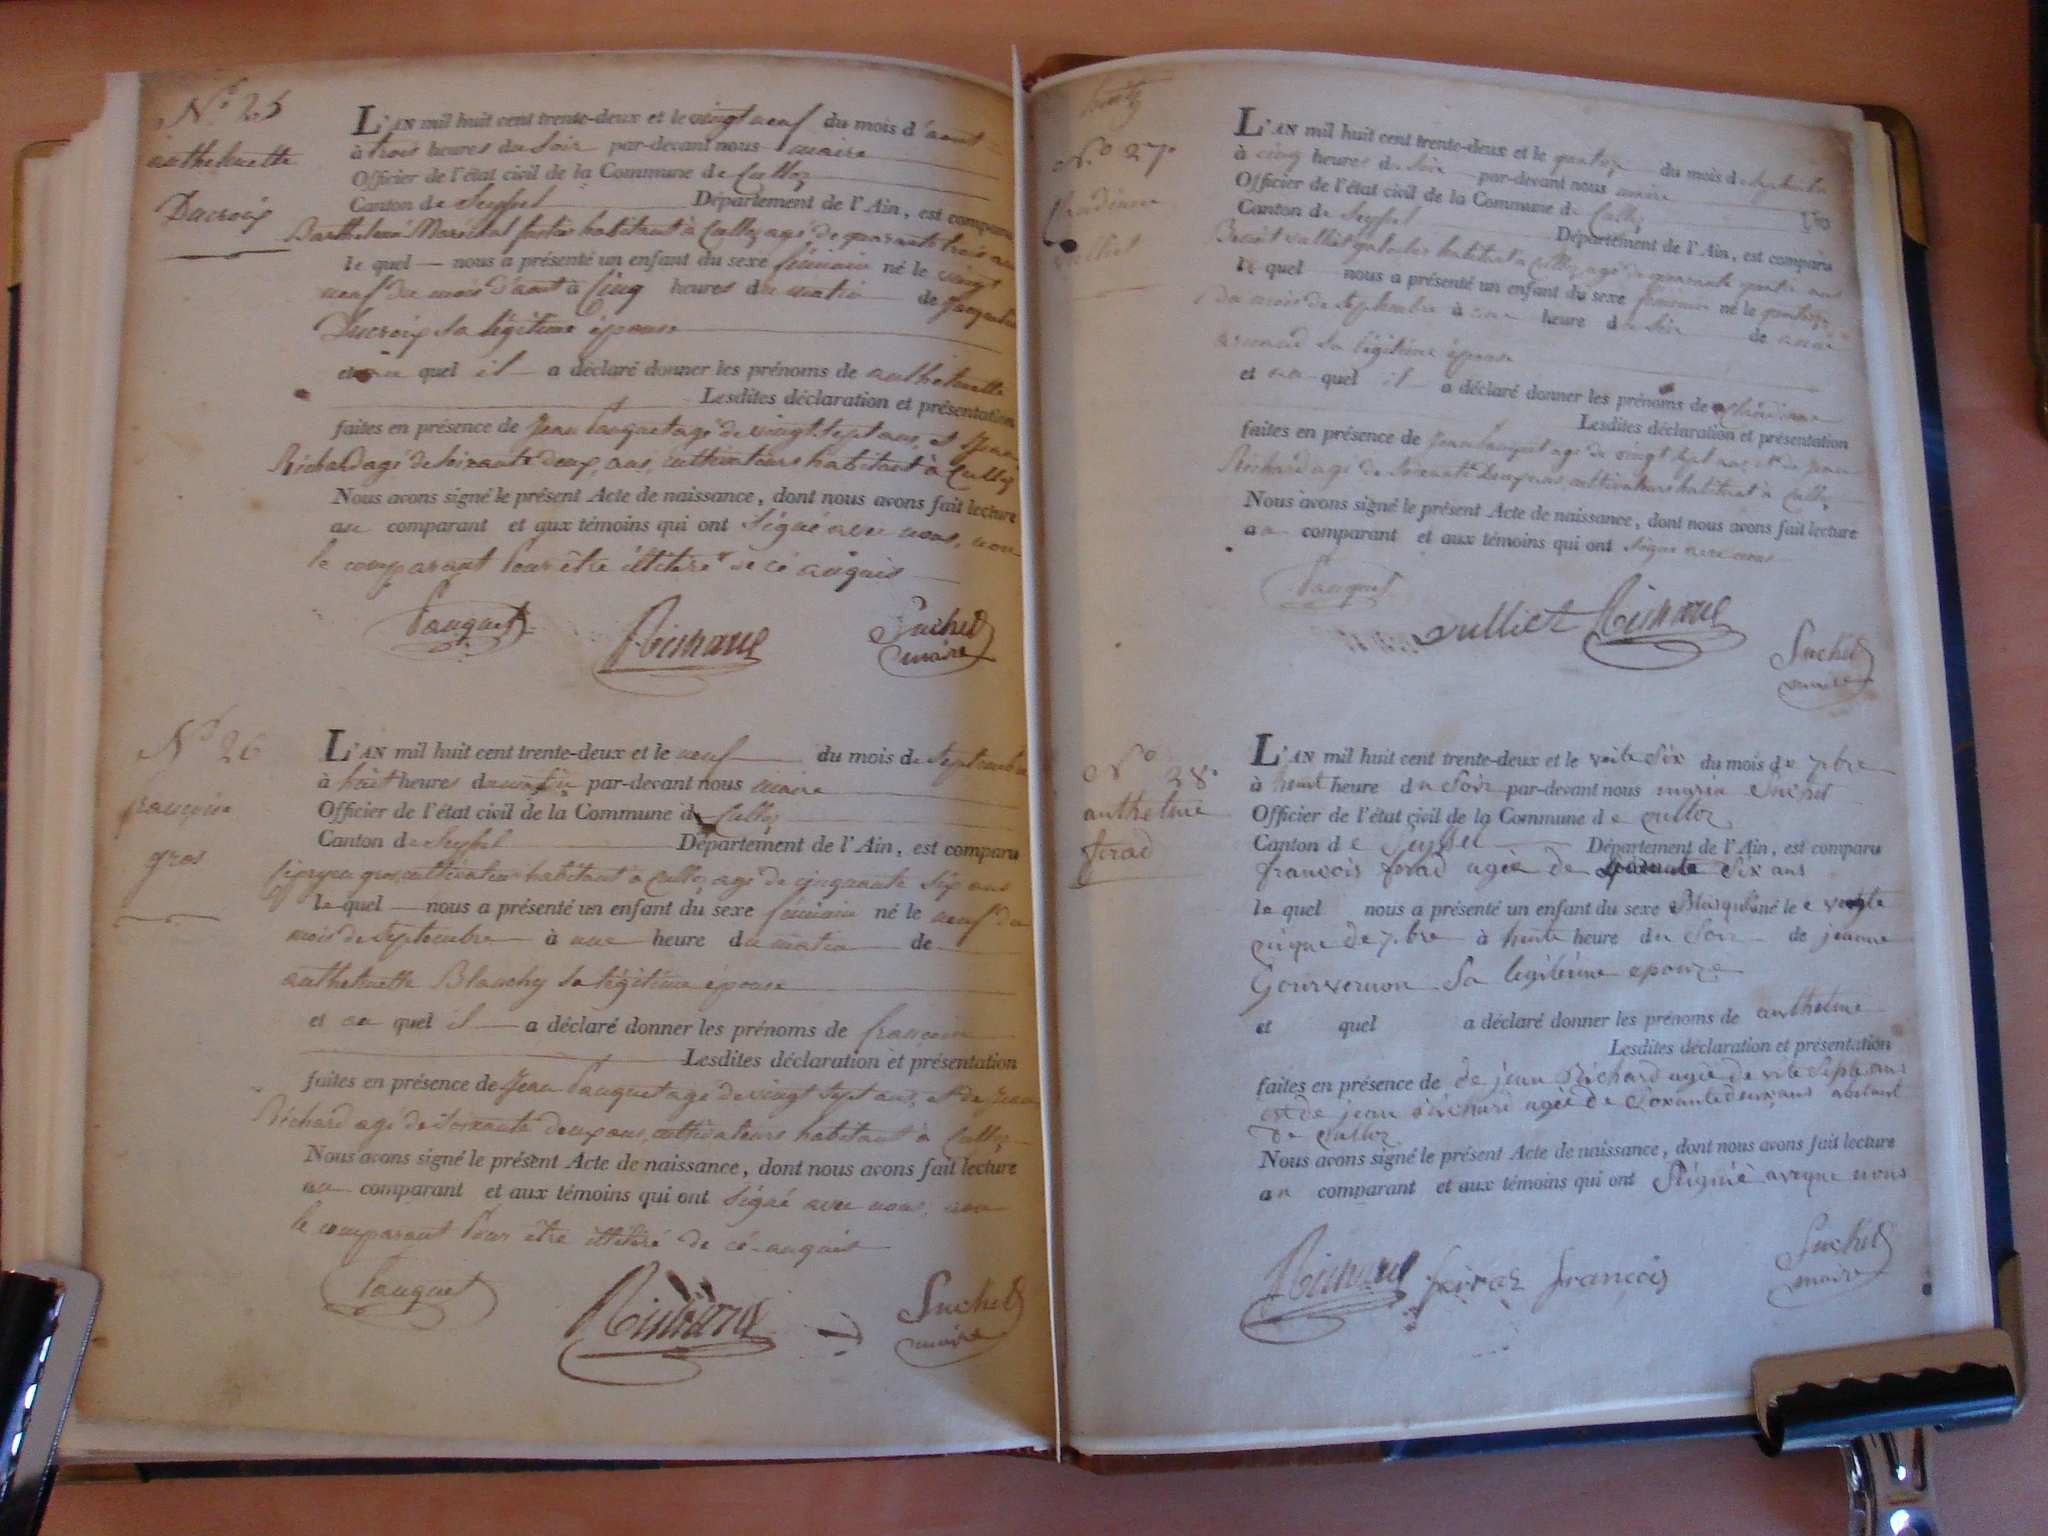 N.º 25
anthelmette
Ducroix
L'AN mil huit cent trente-deux et le vingt neuf du mois d'aout
à trois heures du soir par-devant nous maire
Officier de l'état civil de la Commune de Culloz
Canton de Seyssel Département de l'Ain, est comparu
Barthelemi Maréchal habitant à Culloz agé de quarante trois ans
le quel nous a présenté un enfant du sexe féminin né le vingt
neuf du mois d'aout à cinq heures du matin de Jacqueline
Ducroix sa légitime épouse
et au quel il a déclaré donner les prénoms de anthelmette
Lesdites déclaration et présentation
faites en présence de Jean Pauquet agé de vingt sept ans, et Jean
Richard agé de soixante deux ans, cultivateurs habitant à Culloz
Nous avons signé le présent Acte de naissance, dont nous avons fait lecture
au comparant et aux témoins qui ont signé avec nous, non
le comparant pour être illiteré de ce anquis
Pauquet Richard Suchet
maire
N.º 26
françoise
gros
L'AN mil huit cent trente-deux et le neuf du mois de septembre
à huit heures du matin par-devant nous maire
Officier de l'état civil de la Commune de Culloz
Canton de Seyssel Département de l'Ain, est comparu
gros, cultivateur habitant à Culloz agé de cinquante six ans
le quel nous a présenté un enfant du sexe féminin né le neuf du
mois de septembre à une heure du matin de
anthelmette Blanchy sa légitime épouse
et au quel il a déclaré donner les prénoms de françoise
Lesdites déclaration et présentation
faites en présence de Jean Pauquet agé de vingt sept ans, et de Jean
Richard agé de soixante deux ans, cultivateurs habitant à Culloz
Nous avons signé le présent Acte de naissance, dont nous avons fait lecture
au comparant et aux témoins qui ont signé avec nous, non
le comparant pour être illitéré de cé anquis
Pauquet Richard Suchet
maire
N.º 27
Claudine
vulliet
L'AN mil huit cent trente-deux et le quatorze du mois de septembre
à cinq heures du soir par-devant nous maire
Officier de l'état civil de la Commune de Culloz
Canton de Seyssel Département de l'Ain, est comparu
Benoit vulliet habitant à Culloz agé de quarante quatre ans
le quel nous a présenté un enfant du sexe féminin né le quatorze
du mois de septembre à une heure du soir de
sa légitime épouse
et au quel il a déclaré donner les prénoms de Claudine
Lesdites déclaration et présentation
faites en présence de Jean Pauquet agé de vingt sept ans, et de Jean
Richard agé de soixante deux ans, cultivateurs habitant à Culloz
Nous avons signé le présent Acte de naissance, dont nous avons fait lecture
au comparant et aux témoins qui ont signé avec nous
Pauquet vulliet Richard Suchet
maire
N.º 28
anthelme
ferad
L'AN mil huit cent trente-deux et le veite six du mois de 7bre
à heuit heure du Soir par-devant nous Suchet
Officier de l'état civil de la Commune de culloz
Canton de Département de l'Ain, est comparu
francois ferad agée de six ans
le quel nous a présenté un enfant du sexe né le veigte
cinque de 7bre à heuite heure du Soir de jeanne
Gourvernon Sa legitime epouze
et quel a déclaré donner les prénoms de anthelme
Lesdites déclaration et présentation
faites en présence de de jean Richard agée de vite Septe ans
est de jean richard agée de Soxante deux ans abitant
de culloz
Nous avons signé le présent Acte de naissance, dont nous avons fait lecture
au comparant et aux témoins qui ont Siginé aveque nous
Richard feiraz françois Suchet
maire